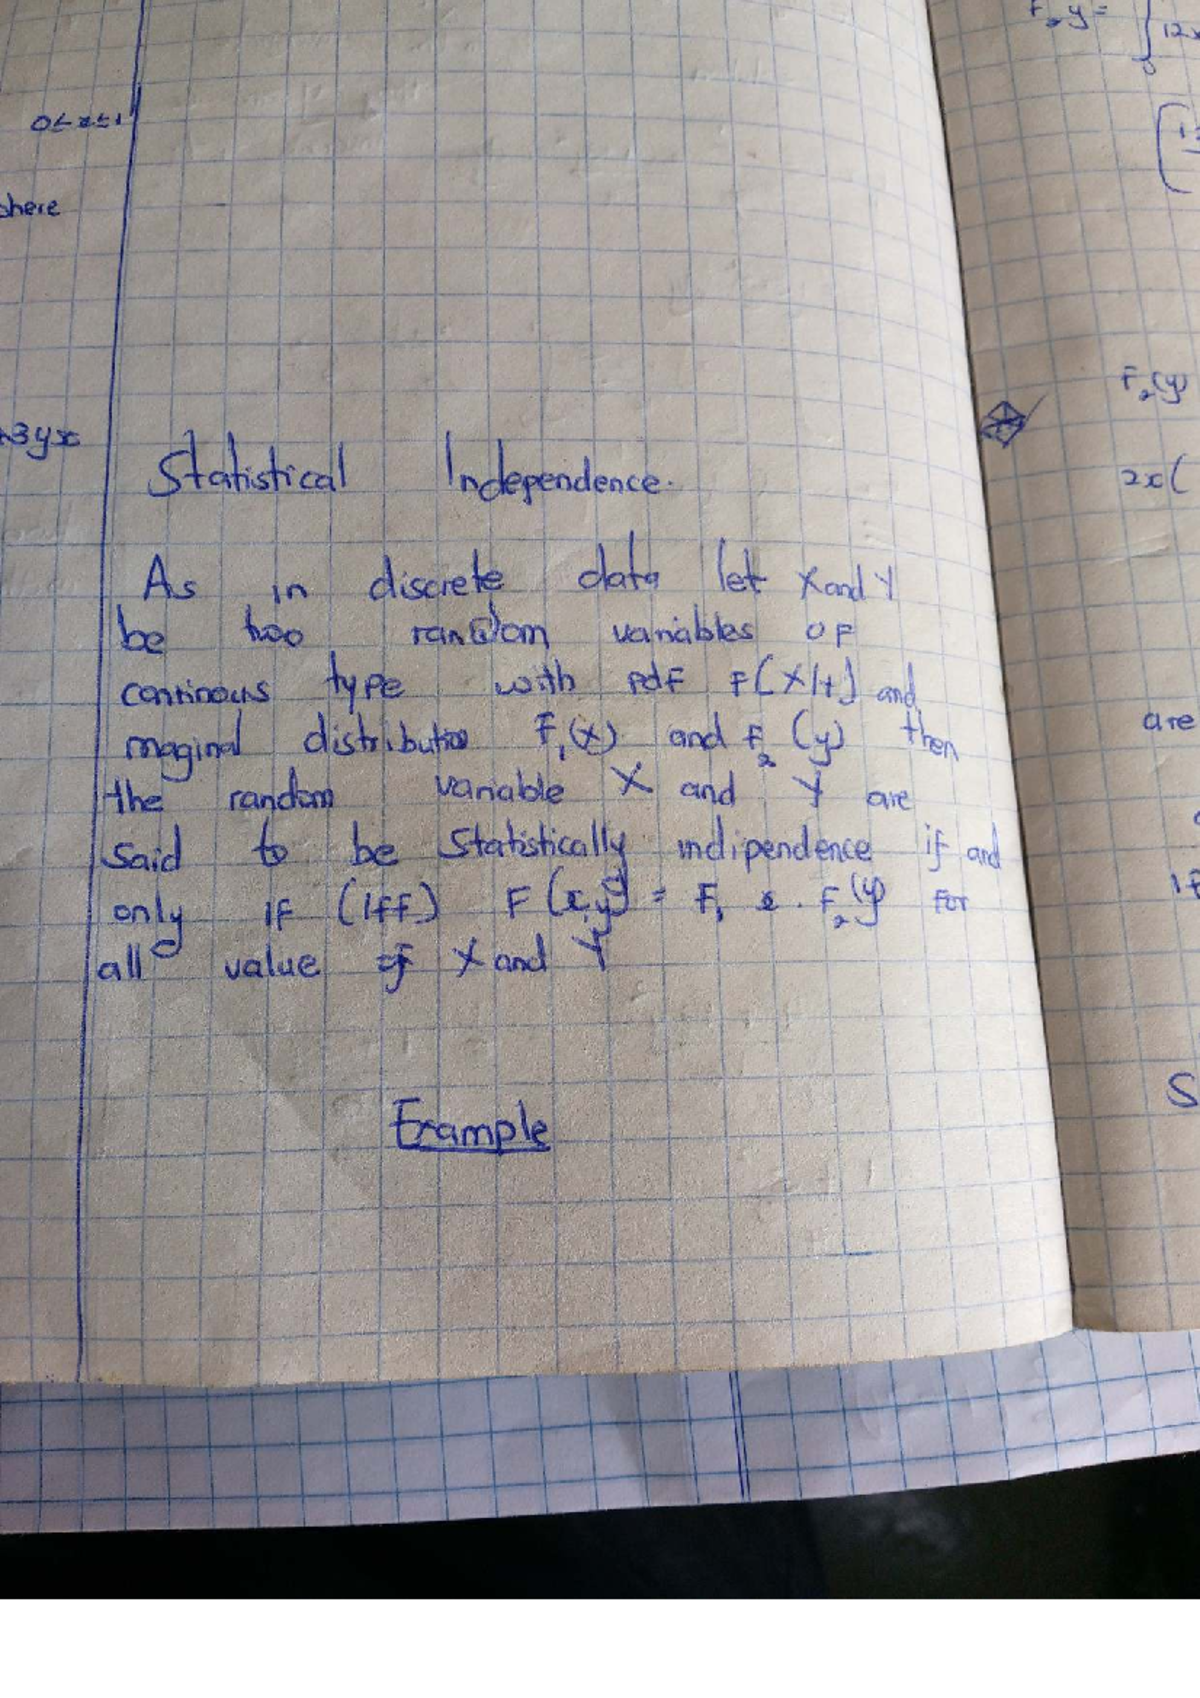 0≤x≤1
where
3yx
Statistical Independence.
As in discrete data let X and Y
be two random variables OF
continous type with pdf F(X/Y) and
maginal distribution F₁(x) and F₂(y) then
the random variable X and Y are
said to be Statistically indipendence if and
only if (iff) F(x,y) = F₁ x . F₂(y) for
all value of X and Y
Example
F₂y =
12x
F₂(y)
2x(
are
if
S